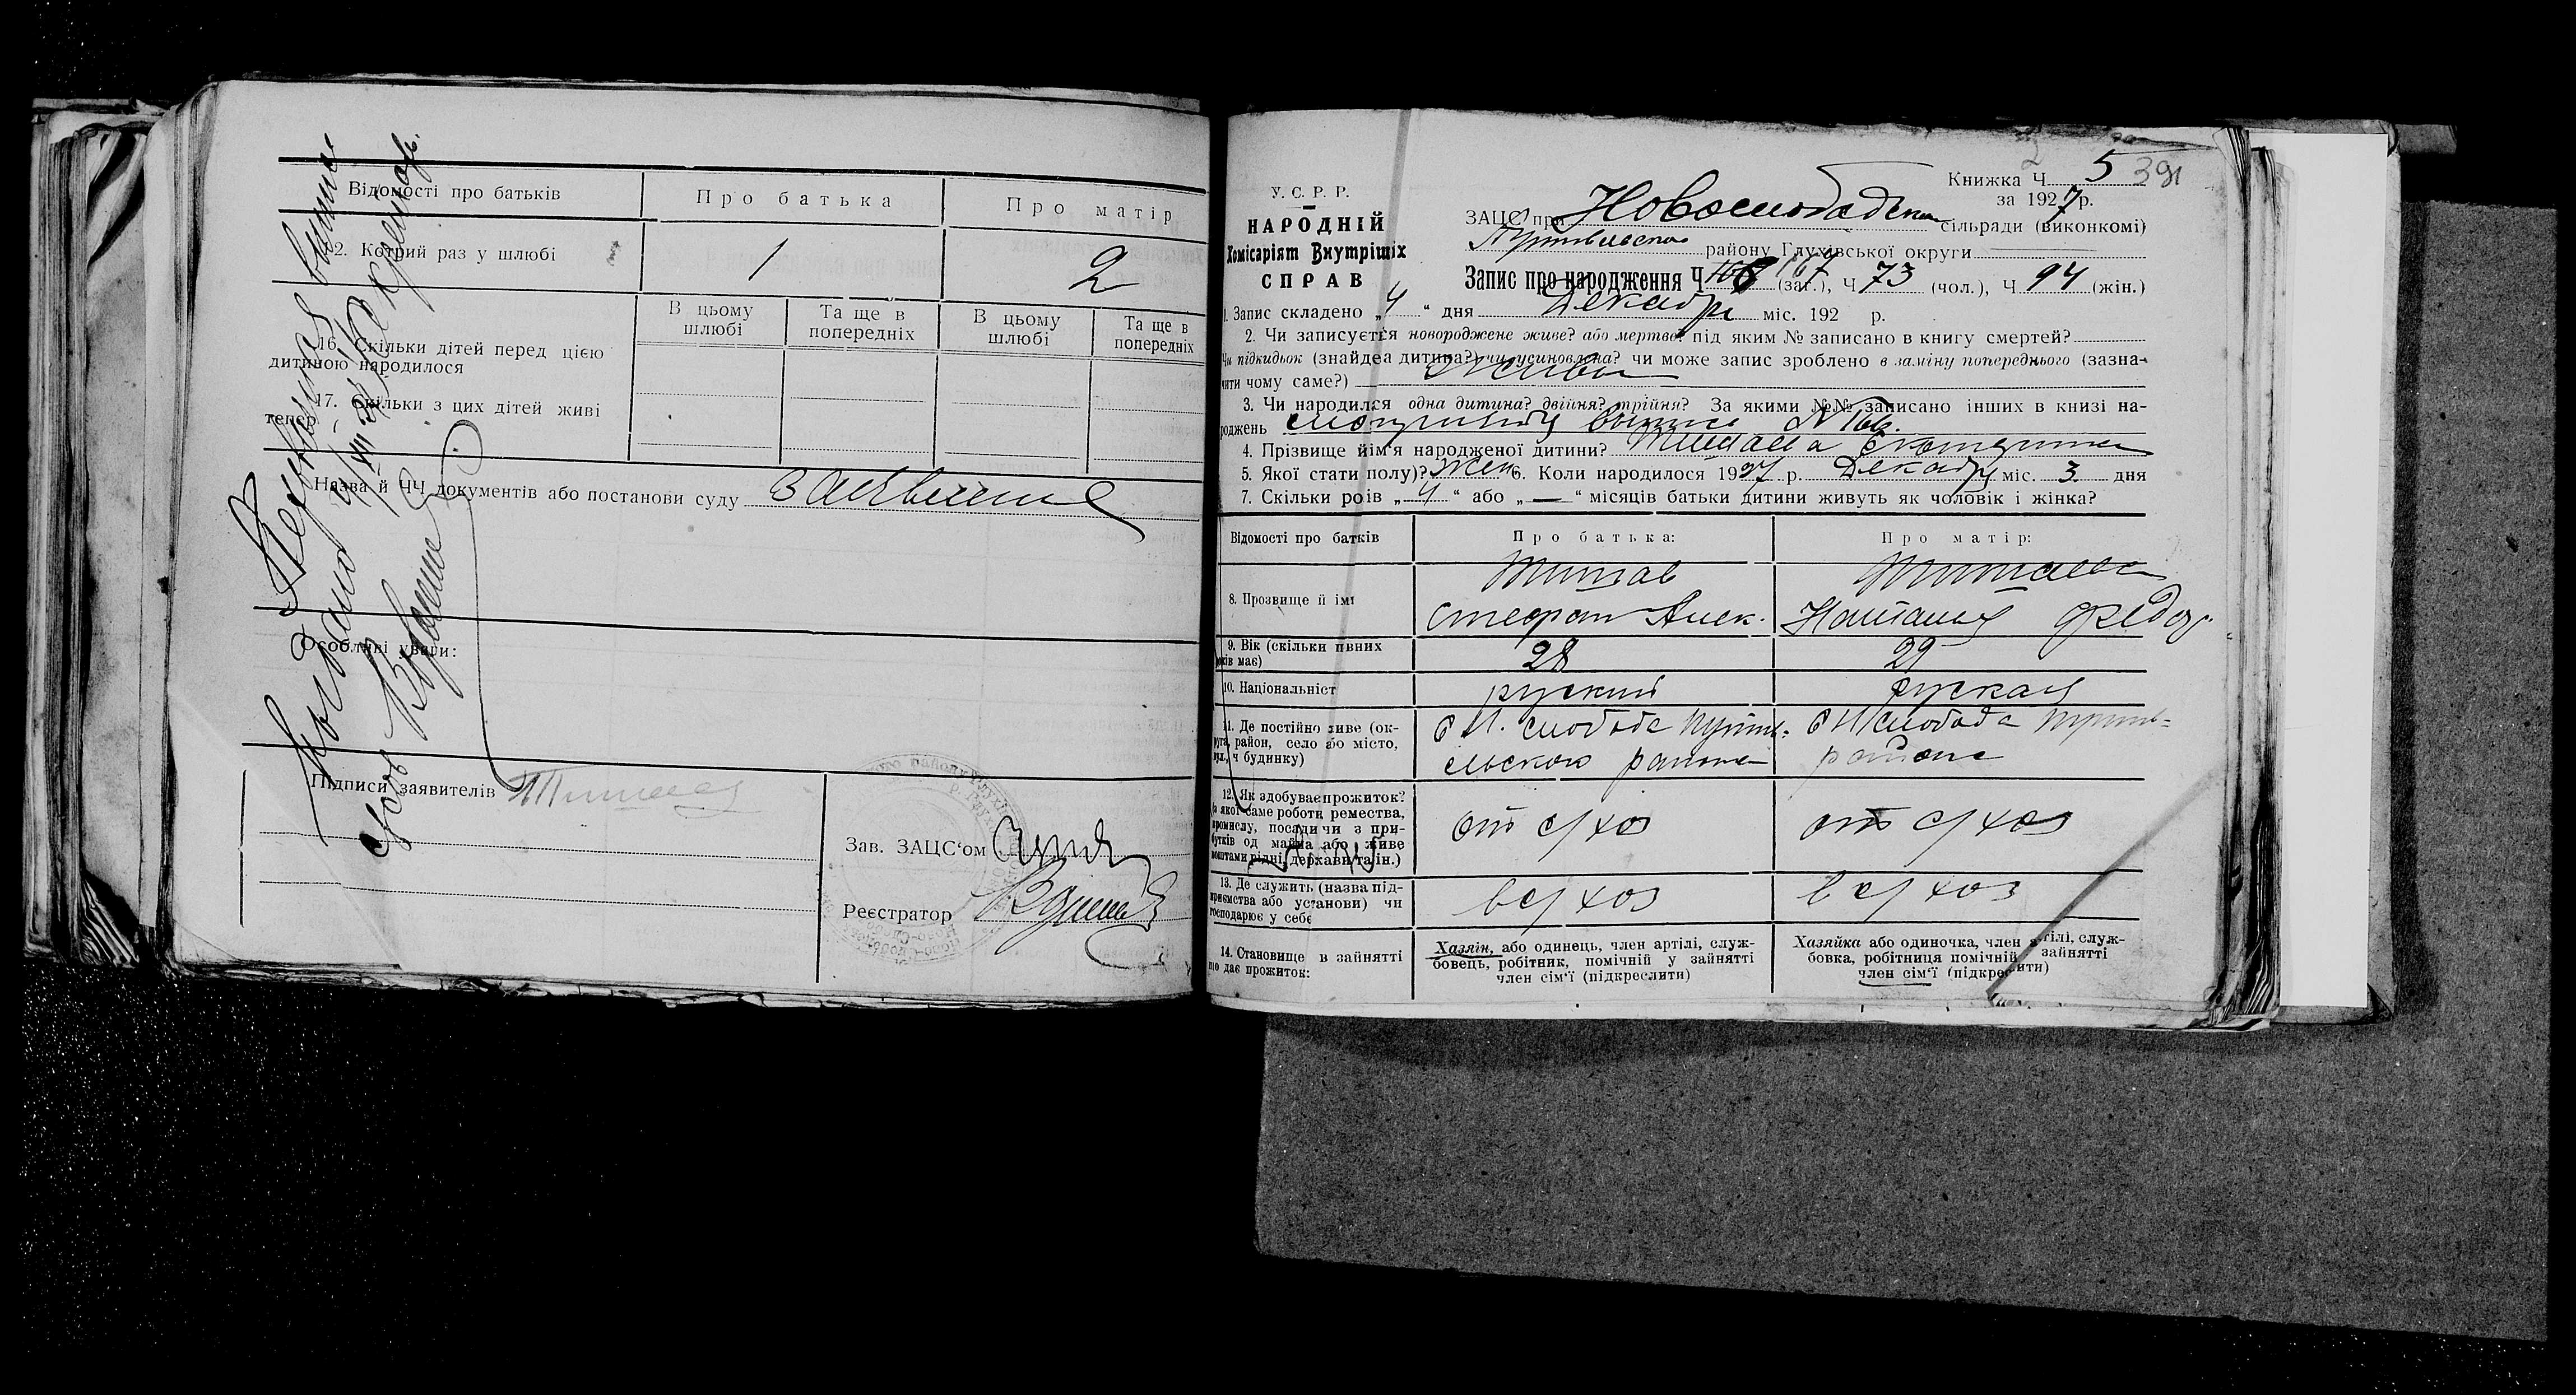 Відомості про батьків
Про батька
Про матір
2. Котрий раз у шлюбі
1
2
В цьому шлюбі
Та ще в попередніх
В цьому шлюбі
Та ще в попередніх
16. Скільки дітей перед цією
дитиною народилося
17. Скільки з цих дітей живі
тепер
Назва й ЧЧ документів або постанови суду
Особливі уваги:
Підписи заявителів
Зав. ЗАЦС‘ом
Реєстратор
Книжка Ч. 5 391
за 1927 р.
У. С. Р. Р.
НАРОДНІЙ
Комісаріят Внутрішніх
СПРАВ
ЗАЦС при Новослободском сільради (виконкомі)
Путивльского району Глухівської округи
Запис про народження Ч 167 (заг.), Ч 73 (чол.), Ч 94 (жін.)
1. Запис складено „4“ дня Декабря міс. 192 р.
2. Чи записується новороджене живе? або мертве? під яким № записано в книгу смертей?
Чи підкидьок (знайдена дитина?) чи усиновлена? чи може запис зроблено в заміну попереднього (зазна-
чити чому саме?) живы
3. Чи народилася одна дитина? двійня? трійня? За якими №№ записано інших в книзі на-
роджень смотриты выпись N 166.
4. Прізвище йім‘я народженої дитини? Титова Екатерина
5. Якої стати полу)? Жен 6. Коли народилося 1927 р. Декабря міс. 3 дня
7. Скільки років „4“ або „—“ місяців батьки дитини живуть як чоловік і жінка?
Відомості про батків
Про батька:
Про матір:
8. Прозвище й ім‘я
Титов
Стефан Алек.
Титова
Наталья Федор
9. Вік (скільки повних
років має)
28
29
10. Національніст
руский
руская
11. Де постійно живе (ок-
руга, район, село або місто,
вул., ч будинку)
с Н. слобода Путив-
льского района
с Н слобода Путив-
района
12. Як здобуває прожиток?
(з якої саме роботи ремества,
промислу, посади чи з при-
бутків од майна або живе
коштами рідні, держави та ін.)
от с/хоз
от с/хоз
13. Де служить (назва під-
приємства або установи) чи
господарює у себе
в с/хоз
в с/хоз
14. Становище в зайнятті
що дає прожиток:
Хазяїн, або одинець, член артілі, служ-
бовець, робітник, помічній у зайнятті
член сім‘ї (підкреслити)
Хазяйка або одиночка, член артілі, служ-
бовка, робітниця помічній зайнятті
член сім‘ї (підкреслити)